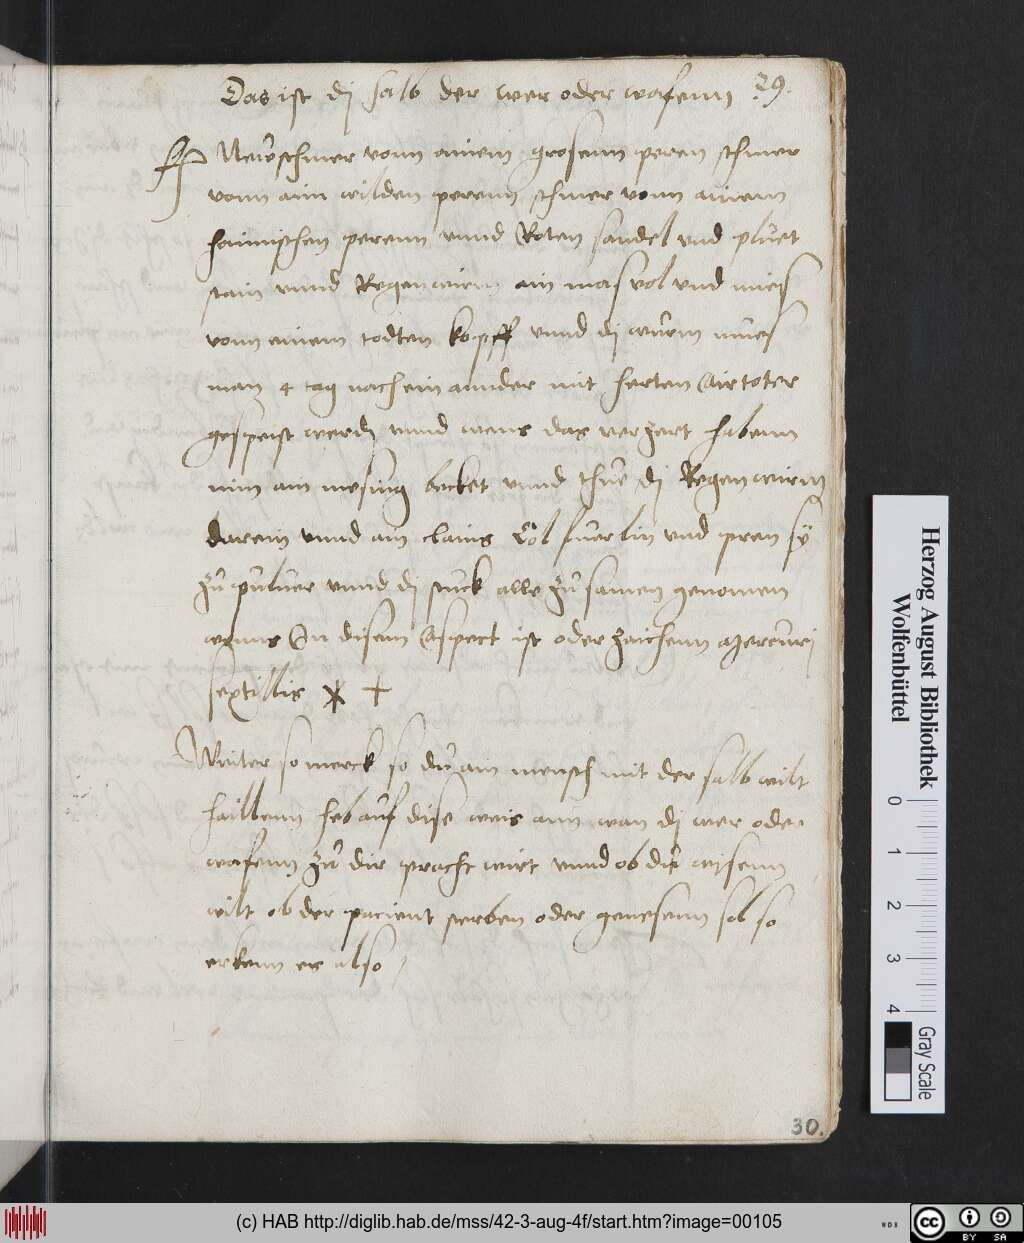 Das ist dj salb der wer oder wafenn 29.
Newschmer vonn ainem grosenn peren schmer
vonn ain wilden perenn schmer vonn ainem
haimischen perenn vnnd Roten sandel vnd pluet
stain vnnd Regenwirm ain mas vol vnd mies
vonn einem todten kopff vnnd dj wurm mues
man 4 tag nach ein annder mit herten Airtoter
gespeist werdn vnnd wens das verzert habenn
nim ain mesing becket vnnd thue dj Regenwirm
darein vnnd ain clains Col fuerlin vnd pren sy
zu puluer vnnd dj stuck alle zu samen genomen
wenns In disem Aspect ist oder zaichenn mercurj
sextillis * +
Weiter so merck so du ain mensch mit der salb wilt
haillenn heb auf dise weis ann wan dj wer oder
wafenn zu dir pracht wirt vnnd ob du wisenn
wilt ob der pacient sterben oder genesenn sol so
erkenn es also
30.
Herzog August Bibliothek
Wolfenbüttel
0 1 2 3 4
Gray Scale
(c) HAB http://diglib.hab.de/mss/42-3-aug-4f/start.htm?image=00105
WDB
cc BY SA